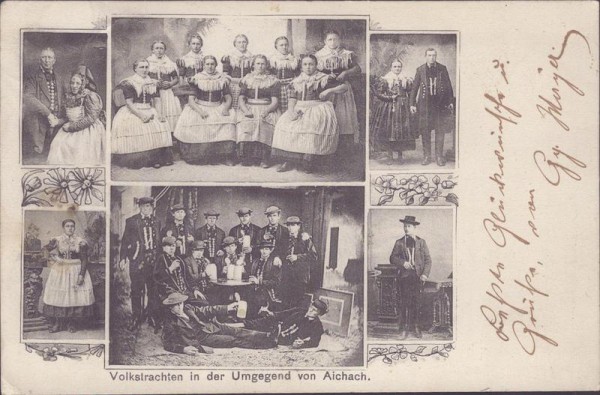 Volkstrachten in der Umgegend von Aichach.
Beste Glückwünsche u.
Grüße, von Gg Mayer